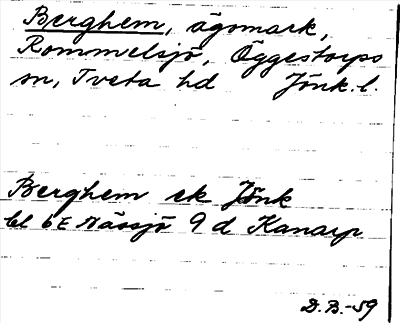 Berghem, ägomark,
Rommelsjö, Öggestorps
sn, Tveta hd Jönk. l.
Berghem ek Jönk
bl 6E Nässjö 9 d Kanarp
D.B.-59